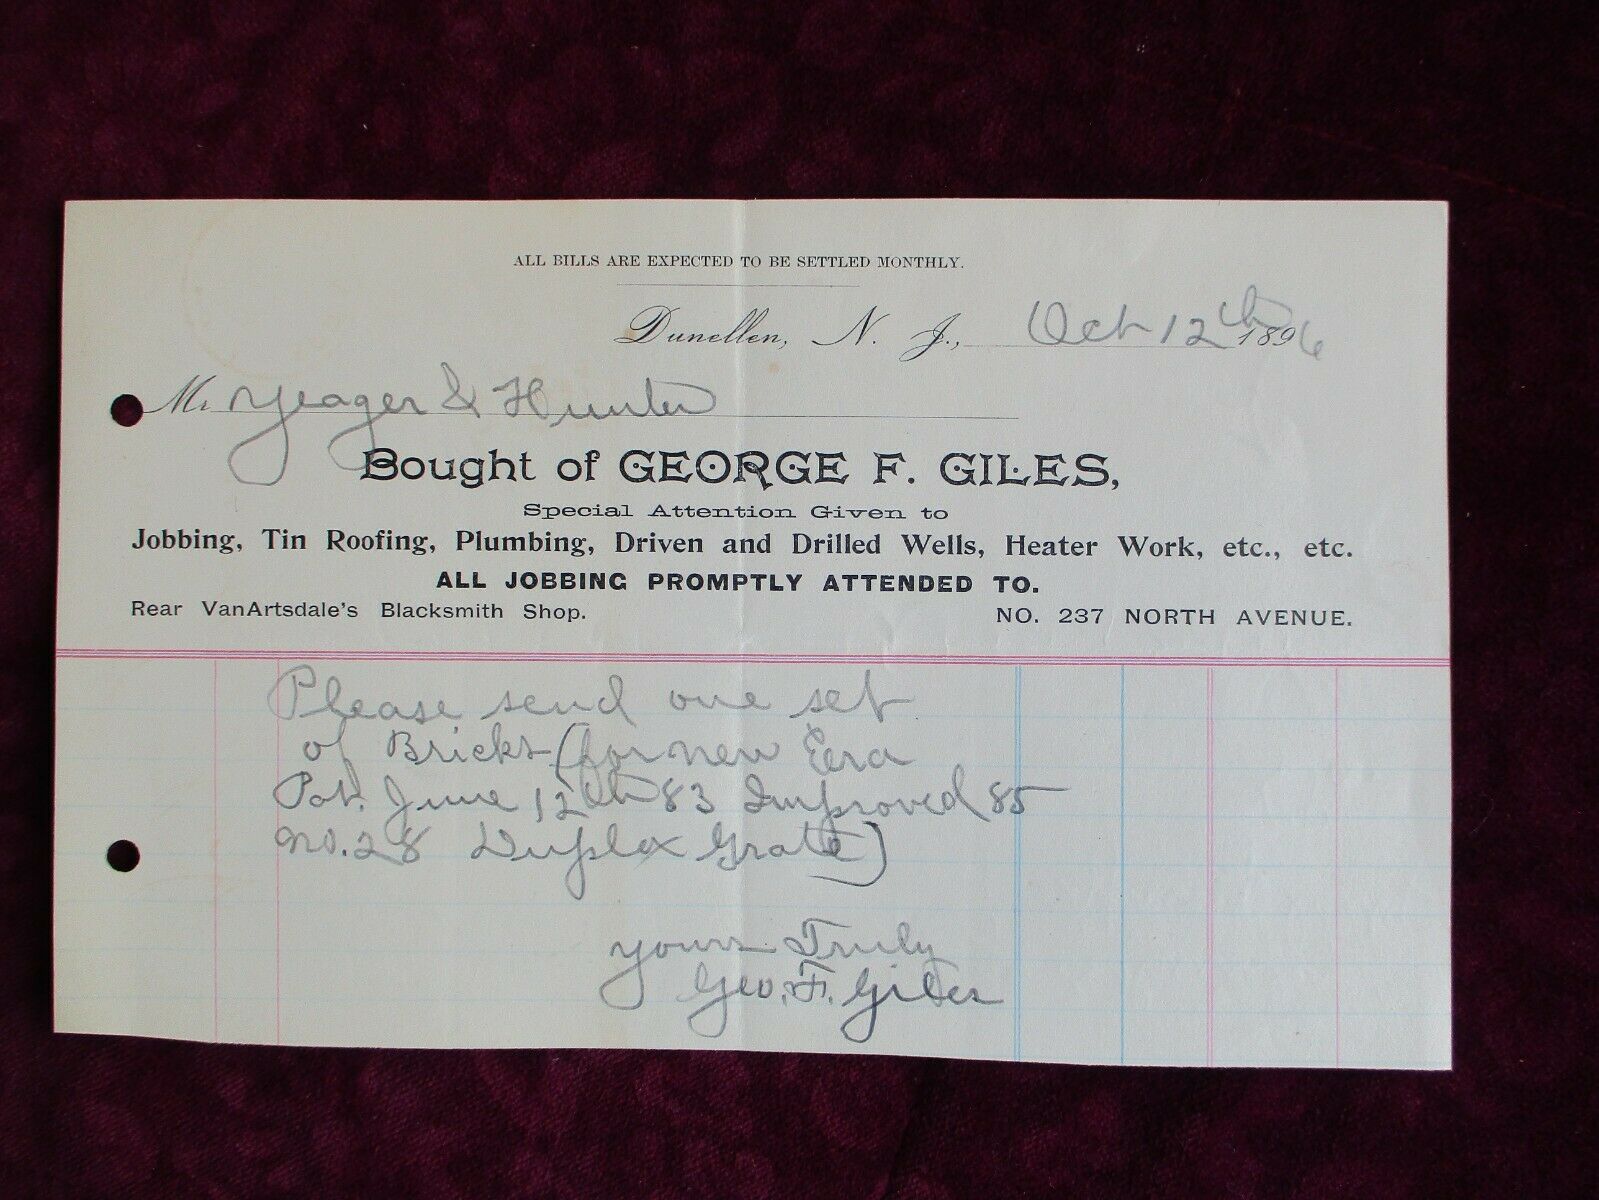 ALL BILLS ARE EXPECTED TO BE SETTLED MONTHLY.
Dunellen, N. J., Oct 12th 1896
Mr Yeager & Hunter
Bought of GEORGE F. GILES,
Special Attention Given to
Jobbing, Tin Roofing, Plumbing, Driven and Drilled Wells, Heater Work, etc., etc.
ALL JOBBING PROMPTLY ATTENDED TO.
Rear VanArtsdale's Blacksmith Shop. NO. 237 NORTH AVENUE.
Please send one set
of Bricks (for new Eera
Pat. June 12th 83 Improved 85
No. 28 Duplex Grate)
yours Truly
Geo. F. Giles